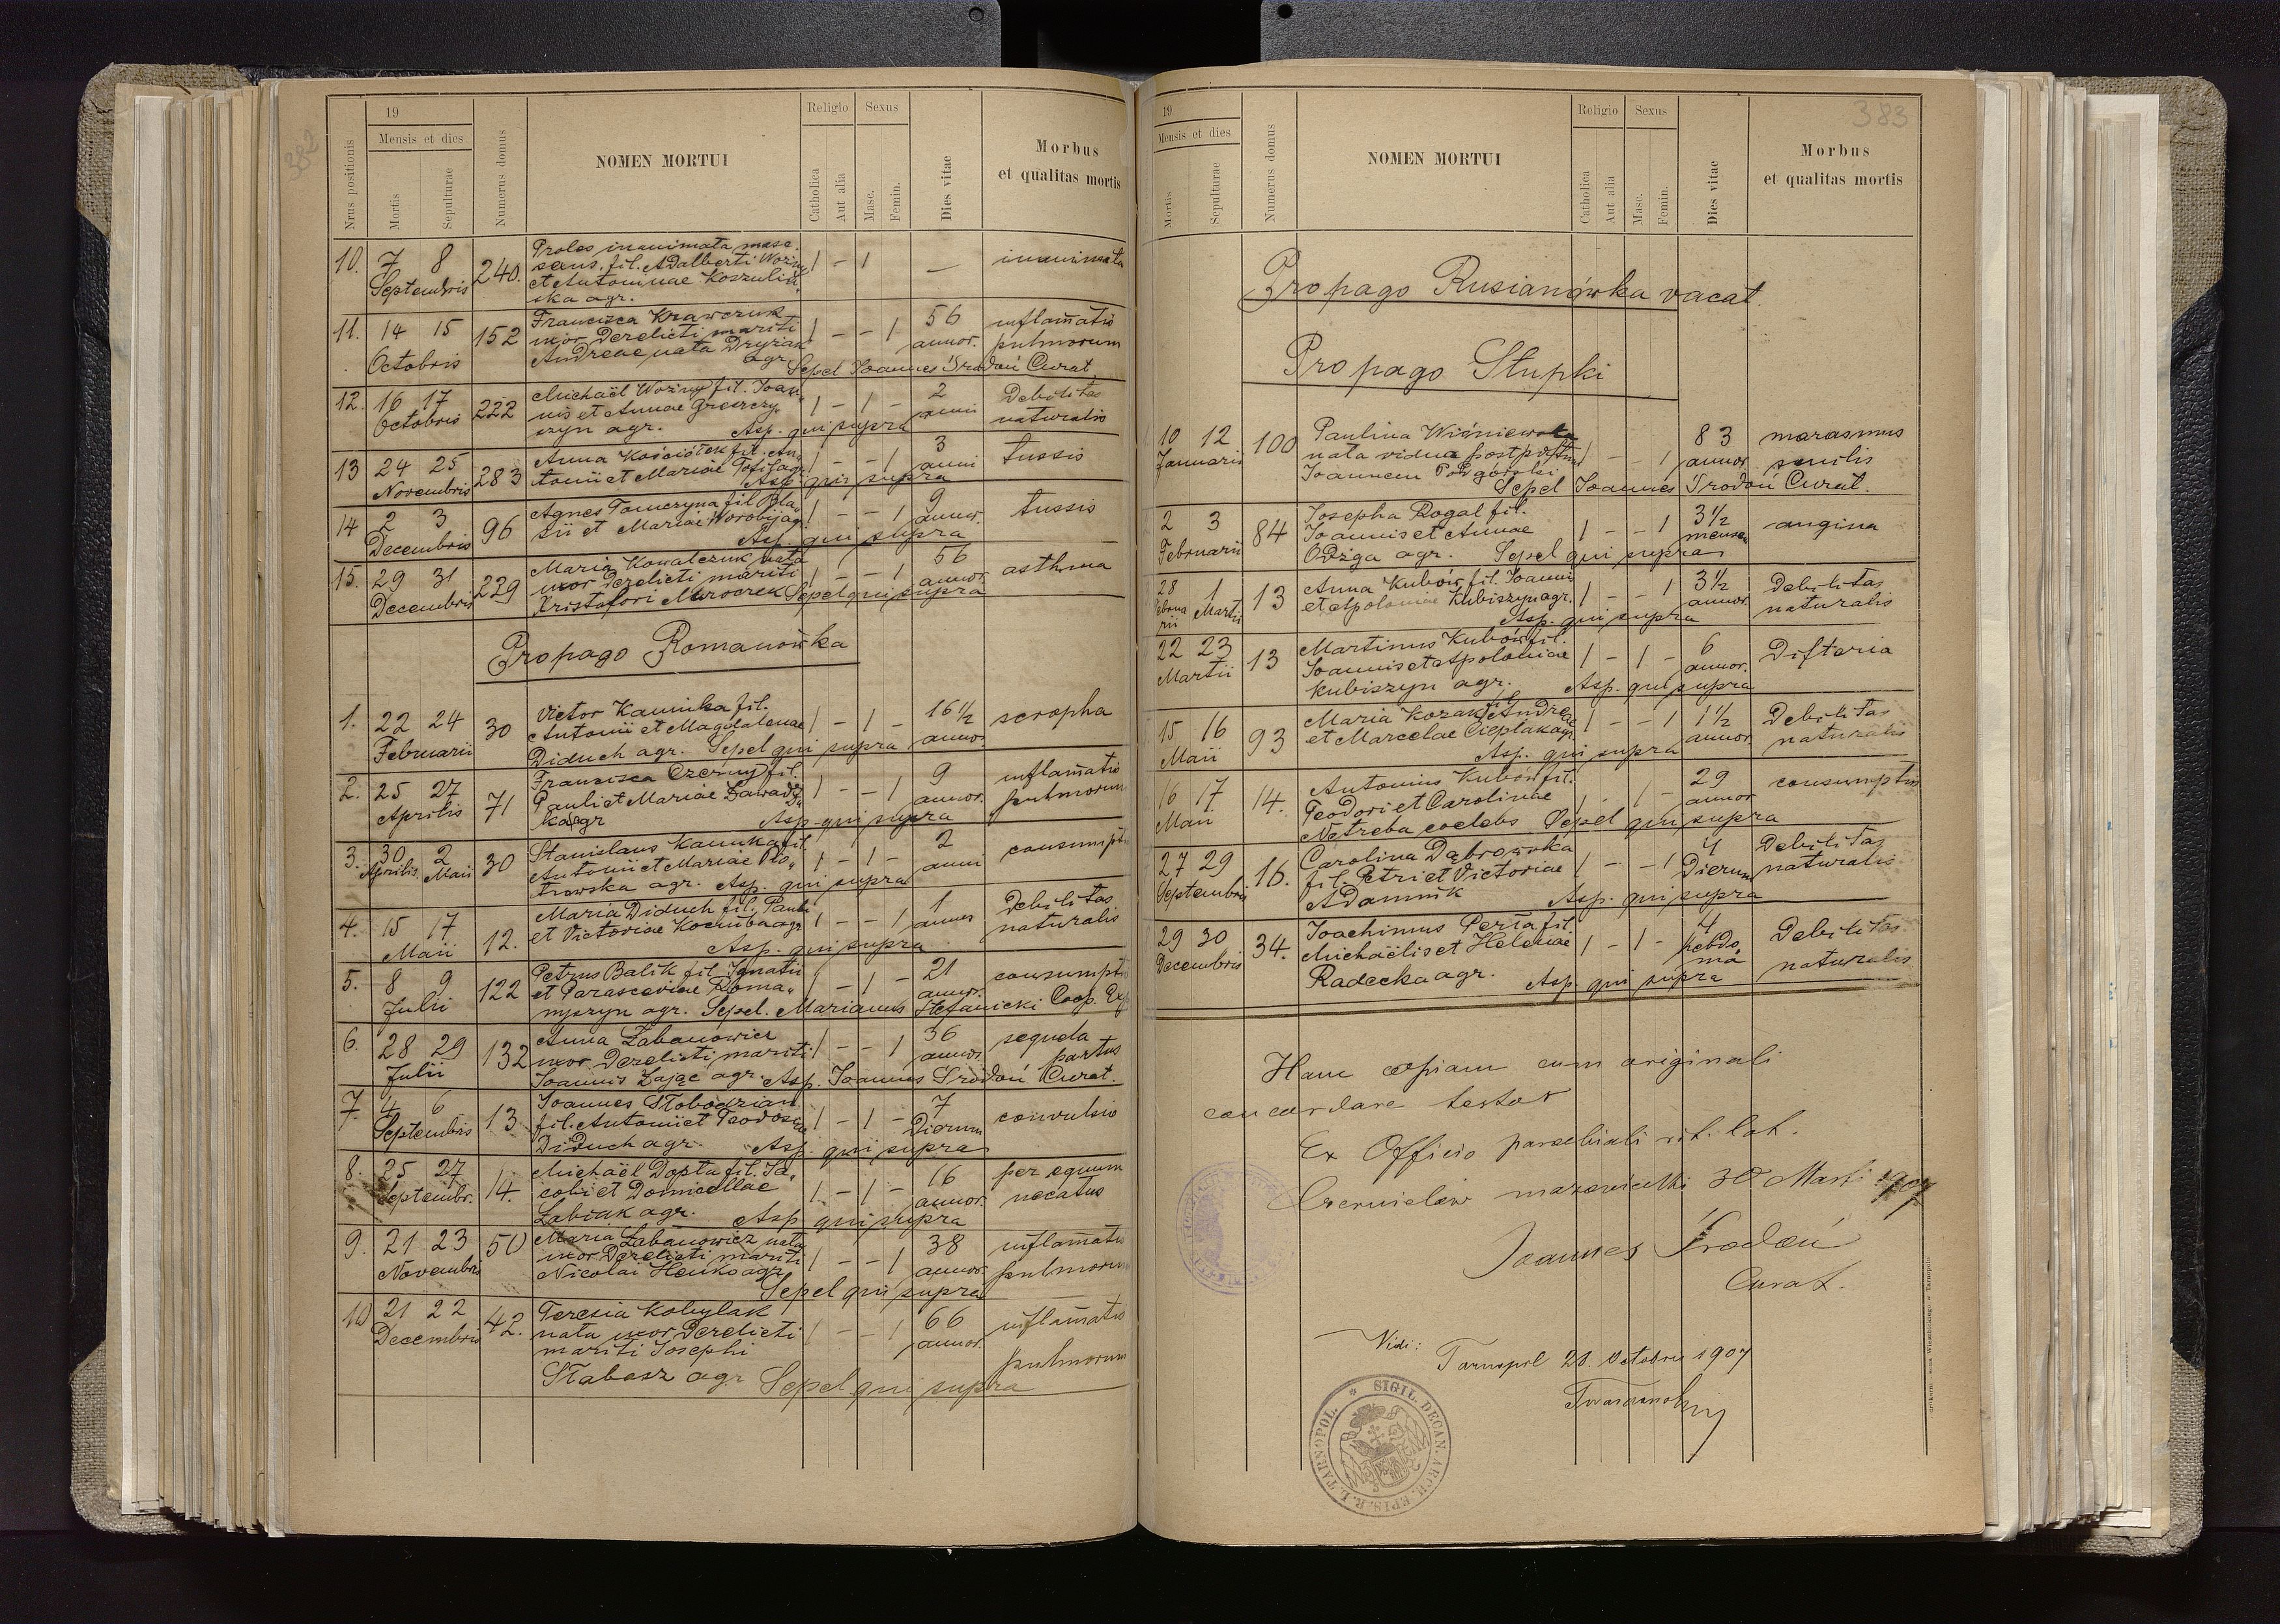 382
19
Mensis et dies
Religio Sexus
Nrus positionis
Mortis
Sepulturae
Numerus domus
NOMEN MORTUI
Catholica
Aut alia
Masc.
Femin.
Dies vitae
Morbus
et qualitas mortis
10. 7 8 Septembris 240. Proles inanimata masc.
sexus. fil. Adalberti Woźny 1 - 1 — inanimata
et Antoninae Koszuliń„
ska agr.
11. 14 15 Octobris 152 Francisca Krawczuk
uxor derelicti mariti 1 - - 1 56 annor. inflam̄atio pulmorum
Andreae nata Dryzak
agr. Sepel Joannes Środoń Curat.
12. 16 17 Octobris 222 Michaël Woźny fil. Joan„
nis et Annae Grerczy„ 1 - 1 - 2 anni Debilitas naturalis
szyn agr. Asp. qui supra
13 24 25 Novembris 283 Anna Kościółek fil. An„
tonii et Mariae Tofil agr. 1 - - 1 3 anni tussis
Asp. qui supra
14 2 3 Decembris 96 Agnes Tomczyna fil Bla„
sii et Mariae Worobij agr. 1 - - 1 9 annor. tussis
Asp. qui supra
15. 29 31 Decembris 229 Maria Kowalczuk nata
uxor derelicti mariti 1 - - 1 56 annor. asthma
Kristofori Mroczek Sepel qui supra
Propago Romanówka
1. 22 24 Februarii 30 Victor Kaminka fil.
Antonii et Magdalenae 1 - 1 - 16 1/2 annor. scropha
Diduch agr. Sepel qui supra
2. 25 27 Aprilis 71 Francisca Czerny fil.
Pauli et Mariae Zawadz„ 1 - - 1 9 annor. inflam̄atio pulmorum
ka agr Asp. qui supra
3. 30 Aprilis 2 Maii 30 Stanislaus Kaminka fil.
Antonii et Mariae Pio„ 1 - 1 - 2 anni consumptio
trowska agr. Asp. qui supra
4. 15 17 Maii 12. Maria Diduch fil. Pauli
et Victoriae Koczuba agr. 1 - - 1 1 annus Debilitas naturalis
Asp. qui supra
5. 8 9 Julii 122 Petrus Balik fil. Ignatii
et Parasceviae Roma„ 1 - 1 - 21 annor. consumptio
nyszyn agr. Sepel. Marianus Stefanicki Coop. Exp
6. 28 29 Julii 132 Anna Zabanowicz
uxor derelicti mariti 1 - - 1 36 annor. sequela partus
Joannis Zając agr. Asp. Joannes Środoń Curat.
7. 4 6 Septembris 13 Joannes Słobodzian
fil. Antonii et Teodosiae 1 - 1 - 7 Dierum convulsio
Diduch agr. Asp. qui supra
8. 25 27 Septembr. 14. Michaël Dopta fil. Ja„
cobi et Domicellae 1. - 1 - 16 annor. per equum necatus
Łabiak agr. Asp qui supra
9. 21 23 Novembris 50 Maria Zabanowicz nata
uxor derelicti mariti 1 - - 1 38 annor. inflam̄atio pulmorum
Nicolai Heńko agr.
Sepel qui supra
10 21 22 Decembris 42. Teresia Kobylak
nata uxor derelicti 1 - - 1 66 annor. inflam̄atio pulmorum
mariti Josephi
Słabosz agr Sepel qui supra
383
19
Mensis et dies
Religio Sexus
Mortis
Sepulturae
Numerus domus
NOMEN MORTUI
Catholica
Aut alia
Masc.
Femin.
Dies vitae
Morbus
et qualitas mortis
Propago Rusianówka vacat.
Propago Stupki
10 12 Januarii 100 Paulina Wiśniewska
nata vidua post p. deftum 1 - - 1 83 annor. marasmus senilis
Joannem Podgórski
Sepel Joannes Środoń Curat.
2 3 Februarii 84 Josepha Rogal fil.
Joannis et Annae 1 - - 1 3 1/2 menser angina
Odżga agr. Sepel qui supra
28 Februarii 1 Martii 13 Anna Kubów fil. Joannis
et Apoloniae Kubiszyn agr. 1 - - 1 3 1/2 annor. Debilitas naturalis
Asp. qui supra
22 23 Martii 13 Martinus Kubów fil.
Joannis et Apoloniae 1 - 1 - 6 annor. Difteria
Kubiszyn agr. Asp. qui supra
15 16 Maii 93 Maria Kozak fil Andreae
et Marcelae Cieplak agr. 1 - - 1 1 1/2 annor Debilitas naturalis
Asp. qui supra
16 17 Maii 14. Antonius Kubów fil.
Teodori et Carolinae 1 - 1 - 29 annor consumptio
Netreba coelebs Sepel qui supra
27 29 Septembris 16. Carolina Dąbrowska
fil. Petri et Victoriae 1 - - 1 4 Dierum Debilitas naturalis
Adamnik Asp. qui supra
29 30 Decembris 34. Joachimus Perła fil.
Michaëlis et Helenae 1 - 1 - 4 hebdoma Debilitas naturalis
Radecka agr. Asp. qui supra
Hanc copiam cum originali
concordare testor
Ex Officio parochiali rit. lat.
Czernielów mazowiecki 30 Marti 1907
Joannes Środoń
Curat.
Vidi:
Tarnopol 21. Octobris 1907
* SIGIL. DECAN. ARCH. EPIS. R. L. TARNOPOL.